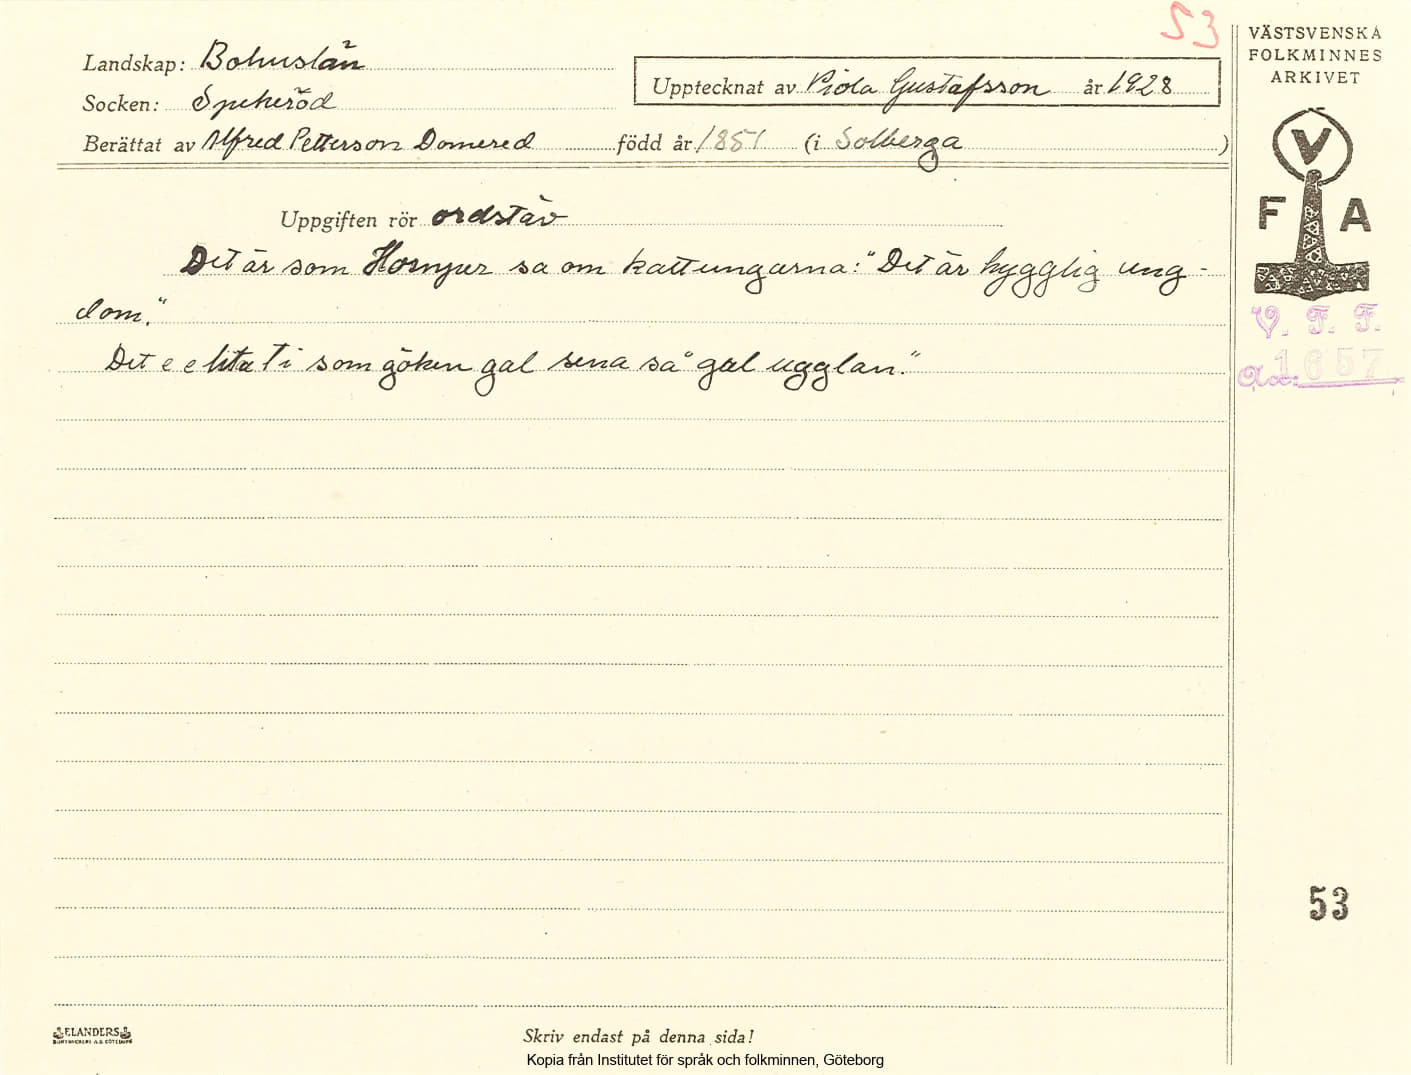 53
VÄSTSVENSKA
FOLKMINNES
ARKIVET
Landskap: Bohuslän
Upptecknat av Viola Gustafsson år 1928
Socken: Spekeröd
Berättat av Alfred Petterson Domered född år 1851 (i Solberga )
V
F A
Uppgiften rör ordstäv
Det är som sa om kattungarna: "Det är hygglig ung-
dom."
Det e e lita ti som göken gal sena så gal ugglan."
V. F. F.
Acc: 1657
53
ELANDERS
Skriv endast på denna sida!
Kopia från Institutet för språk och folkminnen, Göteborg